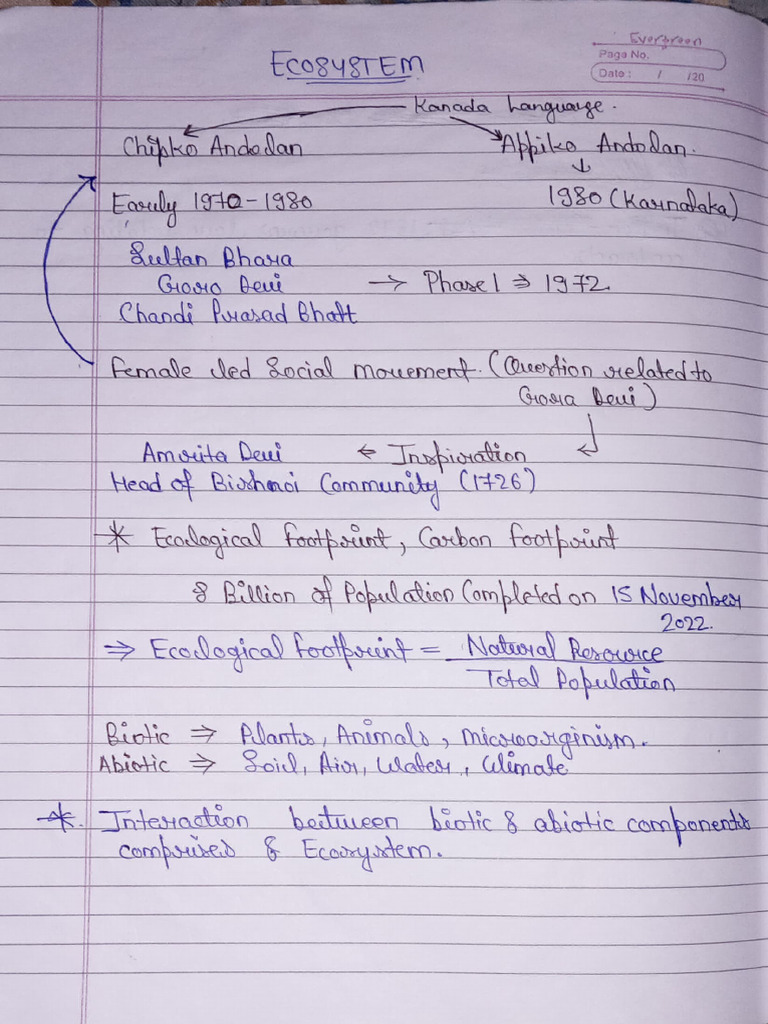 Evergreen
Page No.
Date : / /20
ECOSYSTEM
Kanada Language.
Chipko Andolan
Appiko Andolan.
Early 1970-1980
1980 (Karnataka)
Sultan Bhara
Goro Devi → Phase 1 ⇒ 1972
Chandi Prasad Bhatt
Female led Social movement. (Question related to
Gora Devi)
Amrita Devi ← Inspiration
Head of Bishnoi Community (1726)
* Ecological footprint, Carbon footprint
8 Billion of Population Completed on 15 November
2022.
⇒ Ecological footprint = Natural Resource
Total Population
Biotic ⇒ Plants, Animals, microorginism.
Abiotic ⇒ Soil, Air, Water, Climate
*. Interaction between biotic & abiotic components
comprises & Ecosystem.